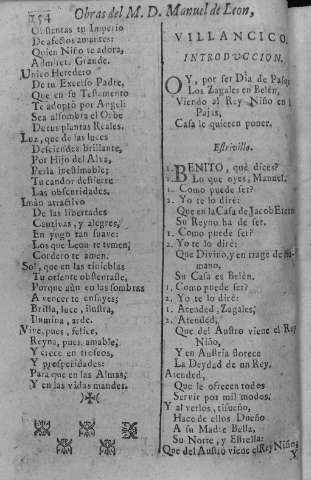 254 Obras del M. D. Manuel de Leon,
Obstentas tu Imperio
De afectos amantes:
Quien Niño te adora,
Admiret. Grande.
Unico Heredero
De tu Excelso Padre,
Que en su Testamento
Te adoptò por Angel:
Sea alfombra el Orbe
De tus plantas Reales.
Luz, que de las luces
Desciendes brillante,
Por Hijo del Alva,
Perla inestimable;
Tu candor destierre
Las obscuridades.
Imàn atractivo
De las libertades
Cautivas, y alegres,
En yugo tan suave:
Los que Leon te temen,
Cordero te amen.
Sol, que en las tinieblas
Tu oriente obstentaste,
Porque aùn en las sombras
A vencer te ensayes;
Brilla, luce, ilustra,
Ilumina, arde.
Vive, pues, felice,
Reyna, pues, amable,
Y crece en trofeos,
Y prosperidades:
Para que en las Almas,
Y en las vidas mandes.
VILLANCICO.
INTRODUCCION.
OY, por ser Dia de Pasqua
Los Zagales en Belèn,
Viendo al Rey Niño en
Pajas,
Casa le quieren poner.
Estrivillo.
1. BENITO, què dices?
2. Lo que oyes, Manuel.
1. Como puede ser?
2. Yo te lo dirè:
Que en la Casa de Jacob Eterno
Su Reyno ha de ser.
1. Como puede ser?
2. Yo te lo dirè:
Que Divino, y en trage de Humano,
Su Casa es Belèn.
1. Como puede ser?
2. Yo te lo dirè:
1. Atended, Zagales;
2. Atended,
Que del Austro viene el Rey
Niño,
Y en Austria florece
La Deydad de un Rey.
Atended,
Que le ofrecen todos
Servir por mil modos.
Y al verlos, risueño,
Hace de ellos Dueño
A su Madre Bella,
Su Norte, y Estrella:
Que del Austro viene el Rey Niño,
Y